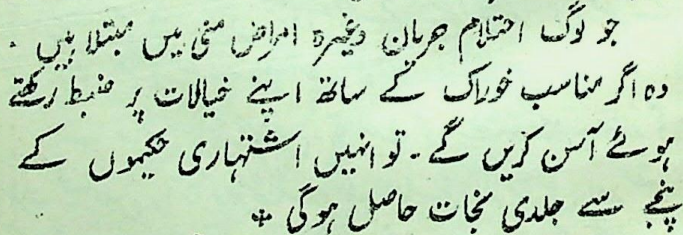 جو لوگ احتلام جریان وغیرہ امراض منی میں مبتلا ہیں ۔
وہ اگر مناسب خوراک کے ساتھ اپنے خیالات پر ضبط رکھتے
ہوئے آسن کریں گے ۔ تو انہیں اشتہاری حکیموں کے
پنجے سے جلدی نجات حاصل ہوگی ❖